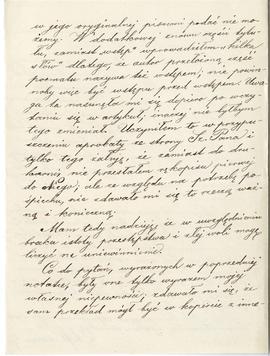 w jego oryginalnej pisowni podać nie mo-
żemy. W dodatkowej znowu części tytu-
łu, zamiast „wstęp" wprowadziłem „kilka
słów" dlatego, że autor przełożoną część
poematu nazywa też wstępem; nie powin-
noby więc być wstępu przed wstępem. Uwa-
ga ta nasunęła mi się dopiero po wczy-
taniu się w artykuł; inaczej nie byłbym
tego zmieniał. Uczyniłem to w przypu-
szczeniu aprobaty ze strony Sz. Pana i
tylko tego żałuję, że zamiast do dru-
karni, nie przesłałem rękopisu pierwej
do niego; ale ze względu na potrzebę po-
śpiechu, nie zdawało mi się to rzeczą waż-
ną i konieczną.
Mam tedy nadzieję, że w uwzględnieniu
braku istoty przestępstwa i złej woli mogę
liczyć na uniewinnienie.
Co do pytań, wyrażonych w poprzedniej
notatce, były one tylko wyrazem mojej
własnej niepewności; zdawało mi się, że
sam przekład mógł być w kopiście z inne-